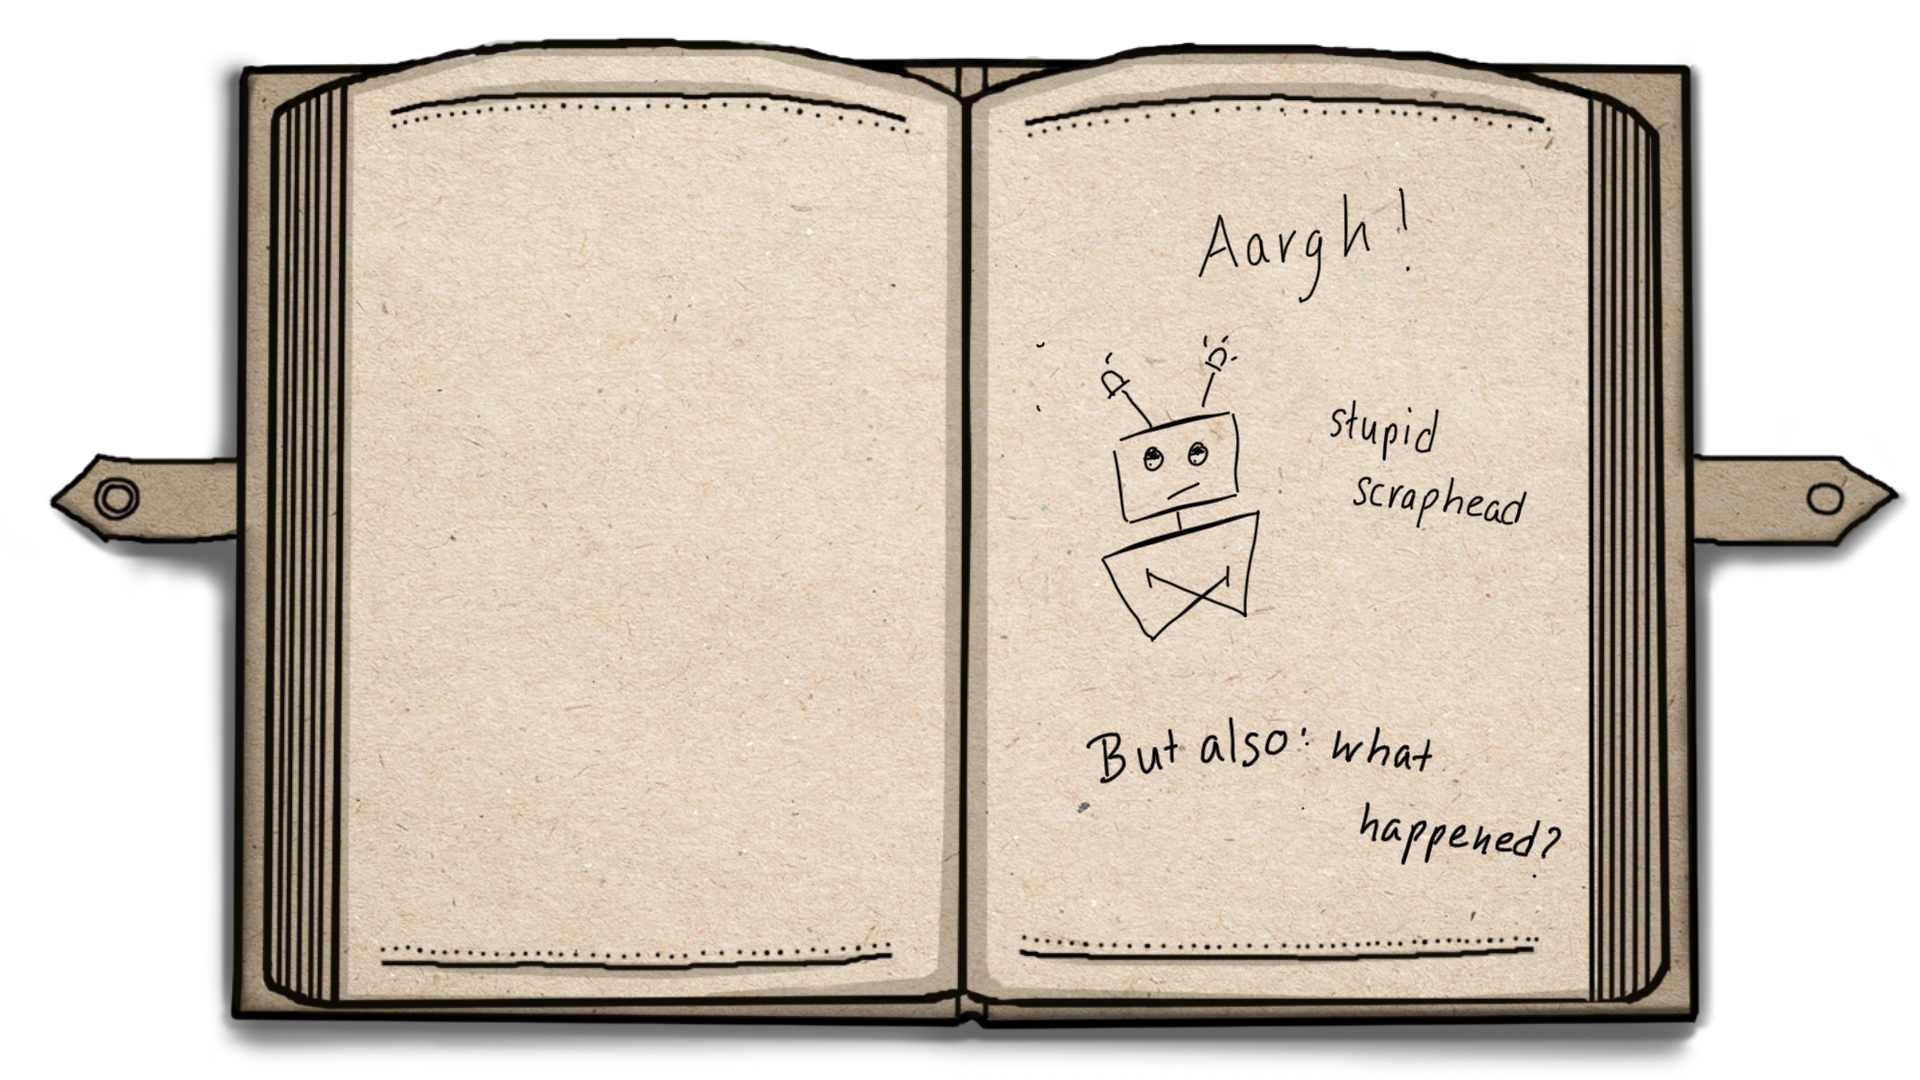 Aargh!
stupid
scraphead
But also: what
happened?